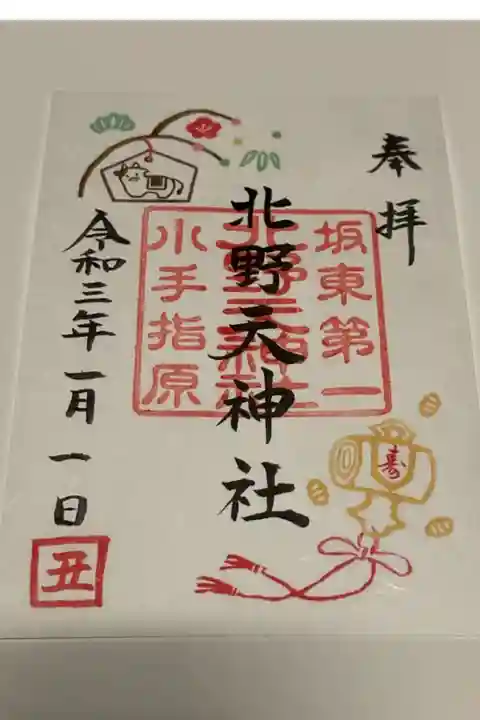 奉拝
坂東第一
北野天神社
北野天神社
小手指原
令和三年一月一日
丑
寿